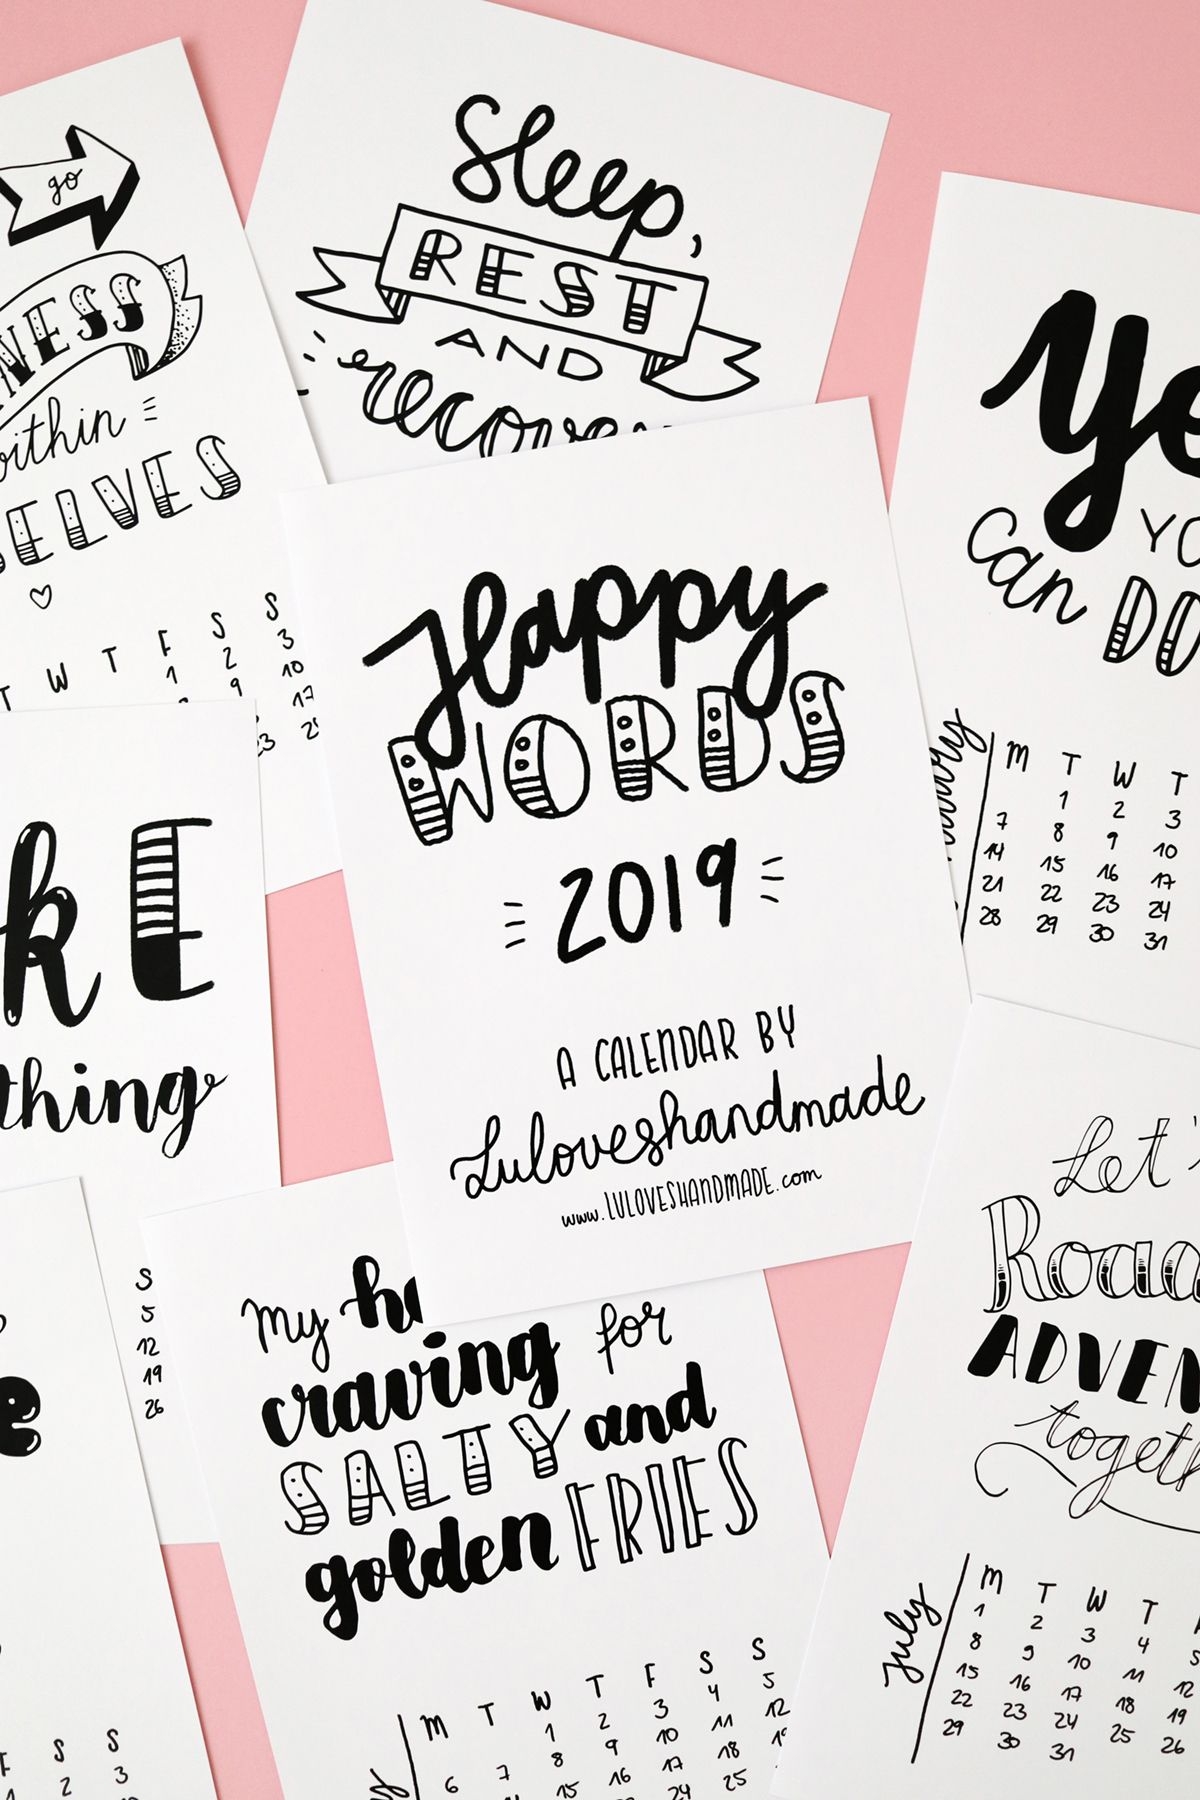 go
within
Sleep,
REST
AND
Yes
can DO
January
M T W T
1 2 3
7 8 9 10
14 15 16 17
21 22 23 24
28 29 30 31
T W T F S S
1 2 3
9 10
17
Happy
WORDS
2019
A CALENDAR BY
Luloveshandmade
www.LULOVESHANDMADE.com
thing
S
5
12
19
26
My
craving for
SALTY and
golden FRIES
M T W T F S S
1 2 3 4 5
6 7 8 9 10 11 12
15 16 17 18
24 25
Let's
together
July
M T W T
1 2 3 4 5
8 9 10 11 12
15 16 17 18 19
22 23 24 25 26
29 30 31
F S S
1 2 3